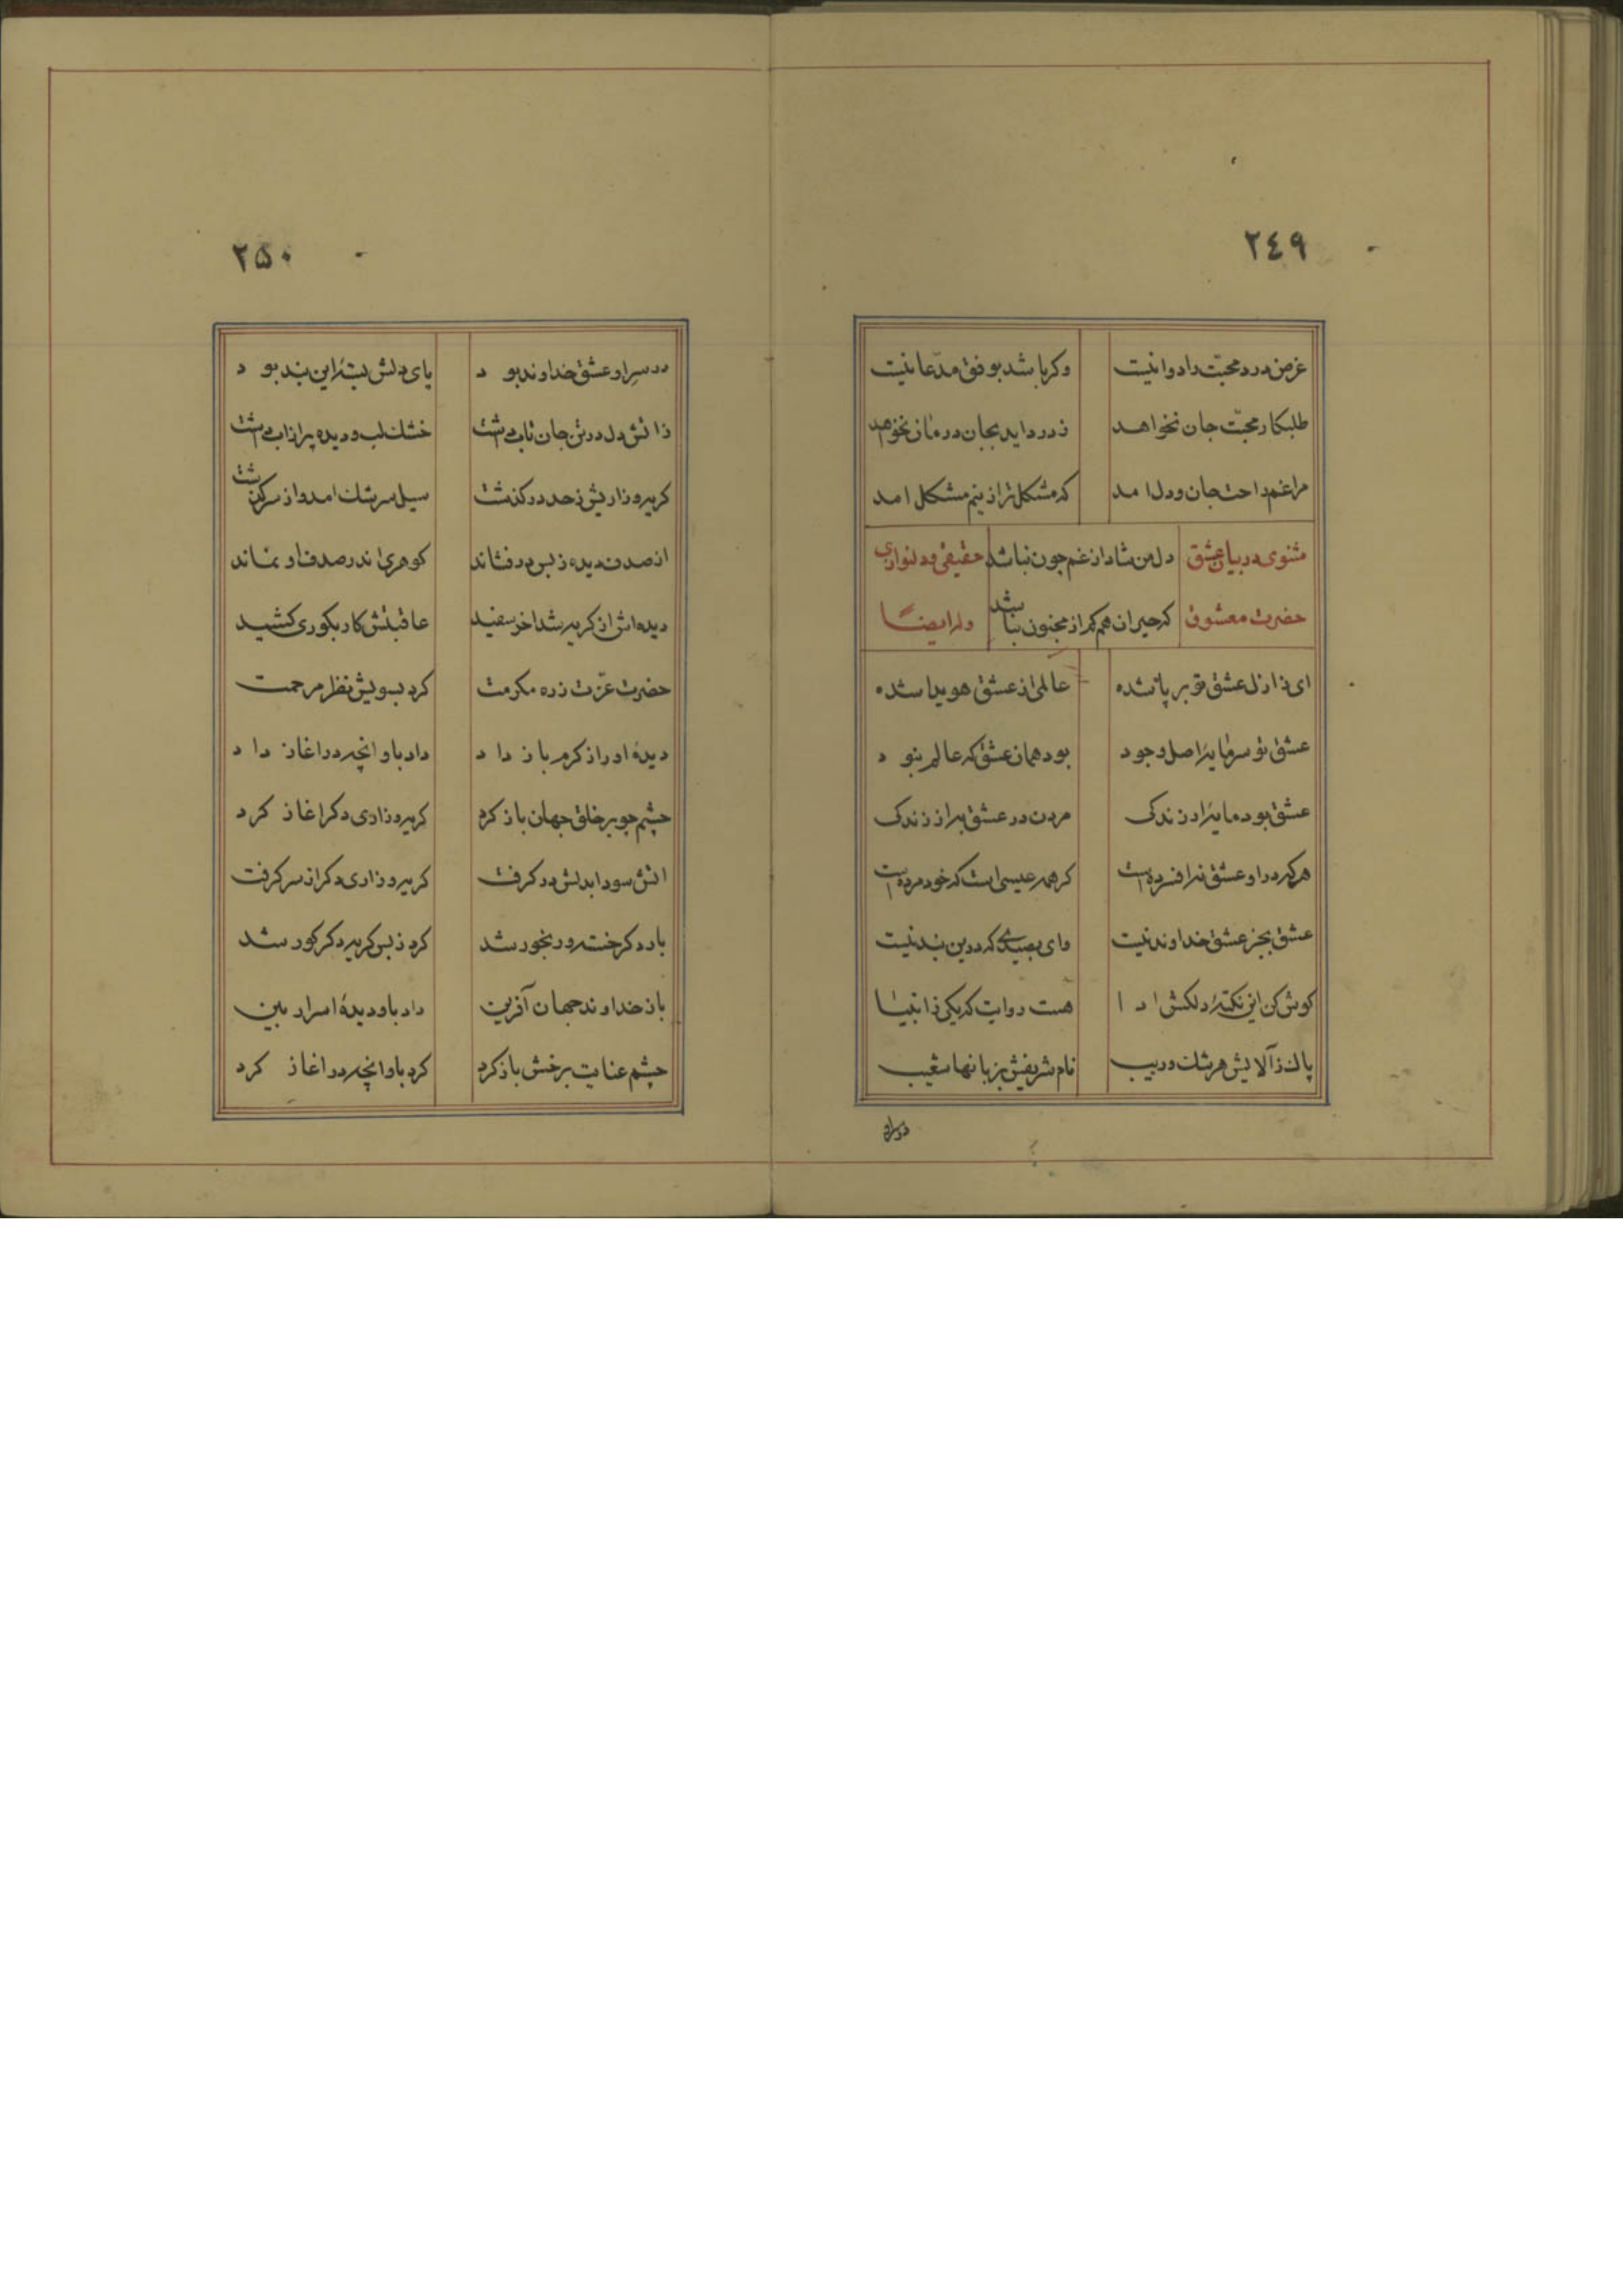 ٢٤٩
غرض درد محبّت را دوا نیست وکر باشد بوفق مدّعا نیست
طلبکار محبّت جان نخواهد ز درد اید بجان درمان نخواهد
مرا غم راحت جان و دل امد که مشکل تر ازینم مشکل امد
مثنوی در بیان عشق دل من شاد از غم چون نباشد حقیقی و دلنوازی
حضرت معشوق که حیران هم کم از مجنون نباشد وله ایضًا
ای ز ازل عشق تو بر پا شده عالمی از عشق هویدا شده
عشق تو سرمایهٔ اصل وجود بود همان عشق که عالم نبود
عشق بود مایهٔ زندکی مردن در عشق به از زندکی
هرکه در او عشق نه افسرده است کر همه عیسی است که خود مرده است
عشق بجز عشق خداوند نیست وای که در این بند نیست
کوش کن این نکتهٔ دلکش ادا هست روایت که یکی ز انبیا
پاک ز آلایش هر شک و ریب نام شریفش بزبانها شعیب
در سر او
٢۵٠
در سر او عشق خداوند بود پای دلش بستهٔ این بند بود
ز اتش دل در تن جان تاب داشت خشک لب و دیده پر از اب داشت
کریه و زاریش ز حد درکذشت سیل سرشک امد و از سر کذشت
از صدف دیده ز بس در فشاند کوهری اندر صدف او نماند
دیده‌اش از کریه شد اخر سفید عاقبتش کار بکوری کشید
حضرت عزّت ز ره مکرمت کرد بسویش نظر مرحمت
دیدهٔ او را ز کرم باز داد داد باو انچه در اغاز داد
چشم چو بر خلق جهان باز کرد کریه و زاری دکر اغاز کرد
اتش سودا بدلش در کرفت کریه و زاری دکر از سر کرفت
بار دکر خسته و رنجور شد کرد ز بس کریه دکر کور شد
باز خداوند جهان آفرین داد باو دیدهٔ اسرار بین
چشم عنایت برخش باز کرد کرد باو انچه در اغاز کرد